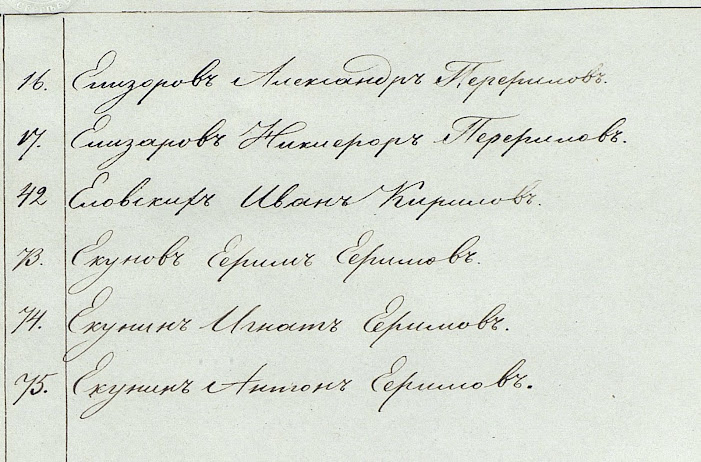 16. Елизаровъ Александръ Перфиловъ.
17. Елизаровъ Никифоръ Перфиловъ.
42 Еловскихъ Иванъ Кириловъ.
73. Екуновъ Ефимъ Ефимовъ.
74. Екунинъ Игнатъ Ефимовъ.
75. Екунинъ Антонъ Ефимовъ.